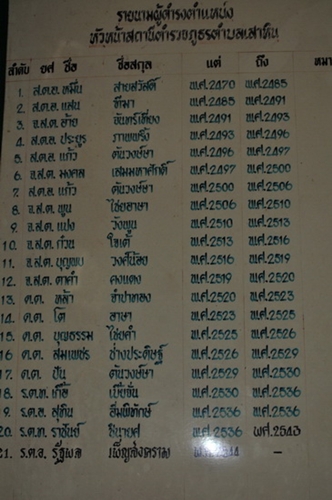 รายนามผู้ดำรงตำแหน่ง
หัวหน้าสถานีตำรวจภูธรตำบลเสาหิน
ลำดับ ยศ ชื่อ ชื่อสกุล แต่ ถึง หมา
1. ส.ต.อ. หมื่น สายสวัสดิ์ พ.ศ.2470 พ.ศ.2485
2. ส.ต.อ. แสน ทิมา พ.ศ.2485 พ.ศ.2491
3. จ.ส.ต. อ้าย จันทร์เที่ยง พ.ศ.2491 พ.ศ.2493
4. ส.ต.อ. ประยูร ภาพพริ้ง พ.ศ.2493 พ.ศ.2496
5. ส.ต.อ. แก้ว ตันวงษ์ษา พ.ศ.2496 พ.ศ.2497
6. จ.ส.ต. มงคล เสมมหาศักดิ์ พ.ศ.2497 พ.ศ.2500
7. ส.ต.อ. แก้ว ตันวงษ์ษา พ.ศ.2500 พ.ศ.2506
8. จ.ส.ต. พูน ไชยอาษา พ.ศ.2506 พ.ศ.2510
9. จ.ส.ต. แปง วังพูน พ.ศ.2510 พ.ศ.2513
10. จ.ส.ต. ก๋วน ใจเต้ พ.ศ.2513 พ.ศ.2516
11. จ.ส.ต. บุญพบ วงศ์น้อย พ.ศ.2516 พ.ศ.2519
12. จ.ส.ต. ตาคำ คงแดง พ.ศ.2519 พ.ศ.2520
13. ด.ต. หล้า จำปาทอง พ.ศ.2520 พ.ศ.2523
14. ด.ต. โต อาษา พ.ศ.2523 พ.ศ.2525
15. ด.ต. บุญธรรม ไชยคำ พ.ศ.2525 พ.ศ.2526
16 ด.ต. สมเพชร ช่างประดิษฐ์ พ.ศ.2526 พ.ศ.2529
17. ด.ต. ปัน ตันวงษ์ษา พ.ศ.2529 พ.ศ.2530
18. ร.ต.ท. เกี๋ย เยี่ยชั่น พ.ศ.2530 พ.ศ.2536
9. ร.ต.อ. สุทิน อิ่มพิทักษ์ พ.ศ.2536 พ.ศ.2536
20. ร.ต.ท. ราชันย์ พ.ศ.2536 พศ.2543
21. ร.ต.อ. รัฐพล –